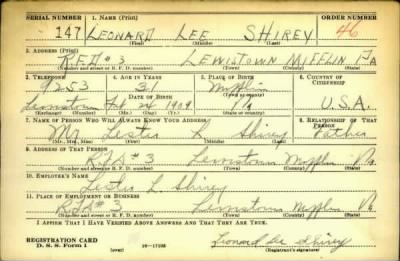 SERIAL NUMBER 1. NAME (Print) ORDER NUMBER
147 LEONARD LEE SHIREY 46
(First) (Middle) (Last)
2. ADDRESS (Print)
R.F.D # 3 LEWISTOWN MIFFLIN PA
(Number and street or R. F. D. number) (Town) (County) (State)
3. TELEPHONE 4. AGE IN YEARS 5. PLACE OF BIRTH 6. COUNTRY OF CITIZENSHIP
9253 31 Mifflin
DATE OF BIRTH (Town or county)
Lewistown Feb 24 1909 Pa U.S.A.
(Exchange) (Number) (Mo.) (Day) (Yr.) (State or country)
7. NAME OF PERSON WHO WILL ALWAYS KNOW YOUR ADDRESS 8. RELATIONSHIP OF THAT PERSON
Mr Shirey Father
(Mr., Mrs., Miss) (First) (Middle) (Last)
9. ADDRESS OF THAT PERSON
R.F.D # 3 Lewistown Mifflin Pa.
(Number and street or R. F. D. number) (Town) (County) (State)
10. EMPLOYER'S NAME
L. Shirey
11. PLACE OF EMPLOYMENT OR BUSINESS
R.F.D # 3 Lewistown Mifflin Pa
(Number and street or R. F. D. number) (Town) (County) (State)
I AFFIRM THAT I HAVE VERIFIED ABOVE ANSWERS AND THAT THEY ARE TRUE.
REGISTRATION CARD
D. S. S. Form 1 (over) Leonard Lee Shirey
(Registrant's signature)